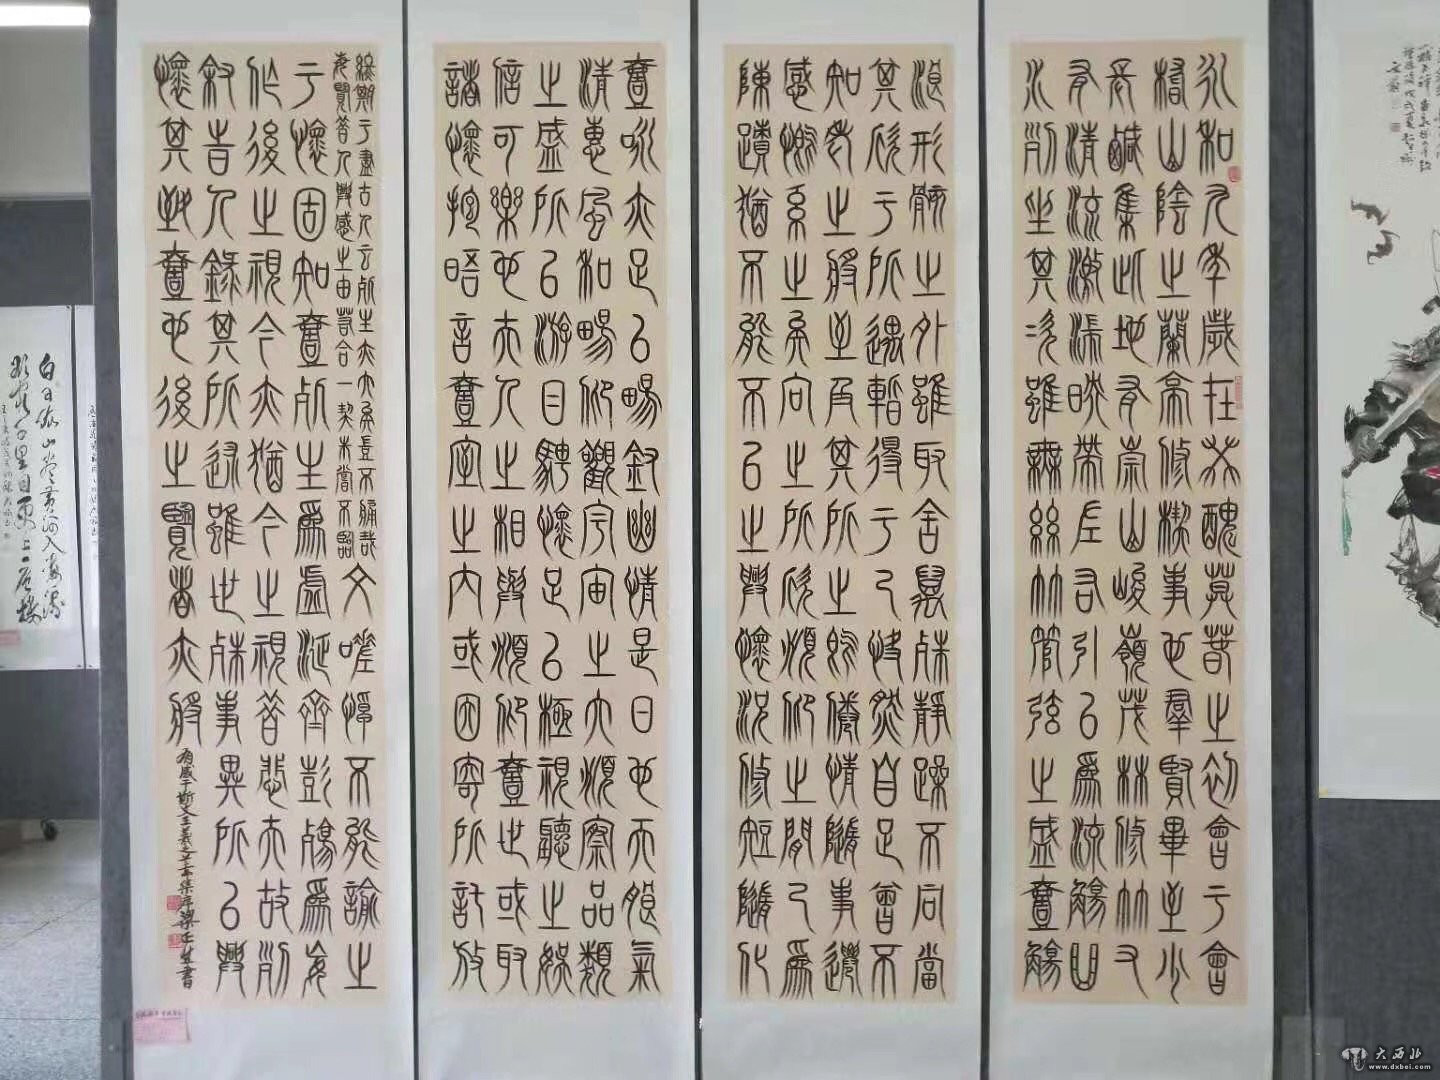 永和九年歲在癸醜莫春之初會于會
稽山陰之蘭亭修禊事也群賢畢至少
長鹹集此地有崇山峻嶺茂林修竹又
有清流激湍映帶左右引以為流觴曲
水列坐其次雖無絲竹管弦之盛壹觴
浪形骸之外雖取舍萬殊靜躁不同當
其欣于所遇暫得于己快然自足曾不
知老之將至及其所之既倦情隨事遷
感慨系之矣向之所欣俯仰之間已為
陳蹟猶不能不以之興懷況修短隨化
壹詠亦足以暢敘幽情是日也天朗氣
清惠風和暢仰觀宇宙之大俯察品類
之盛所以游目騁懷足以極視聽之娛
信可樂也夫人之相與俯仰壹世或取
諸懷抱晤言壹室之內或因寄所託放
終期于盡古人云死生亦大矣豈不痛哉
每覽昔人興感之由若合一契未嘗不臨
文嗟悼不能諭之
于懷固知壹死生為虛誕齊彭殤為妄
作後之視今亦猶今之視昔悲夫故列
敘時人錄其所述雖世殊事異所以興
懷其致壹也後之覽者亦將
有感于斯文王羲之蘭亭集序梁正書
白日依山盡黃河入海流
欲窮千里目更上一層樓
大西北
www.dxbei.com